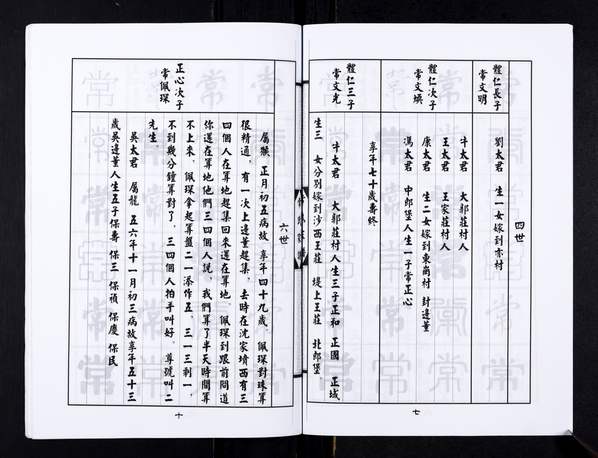 四世
體仁長子
常文明
劉太君 生一女嫁到亦村
體仁次子
常文煥
牛太君 大郭莊村人
王太君 王家莊村人
康太君 生二女嫁到東尚村 封邊董
馮太君 中郎堡人生一子常正心
享年七十歲壽終
體仁三子
常文光
牛太君 大郭莊村人生三子正和 正國 正域
生三 女分别嫁到沙西王莊 堤上王莊 北郎堡
七
六世
正心次子
常佩琛
屬猴 正月初五病故 享年四十九歲 佩琛對珠算
很精通 有一次上邊董趕集 去時在沈家墳西有三
四個人在算地趕集回來還在算地 佩琛到跟前問道
你還在算地他們三四個人說 我們算了半天時間算
不上來 佩琛拿起算盤二一添作五 三一三剩一
不到幾分鐘算對了 三四個人拍手叫好 尊號叫二
先生
吳太君 屬龍 五六年十一月初三病故享年五十三
歲吳邊董人生五子保壽 保三 保禎 保慶 保民
十